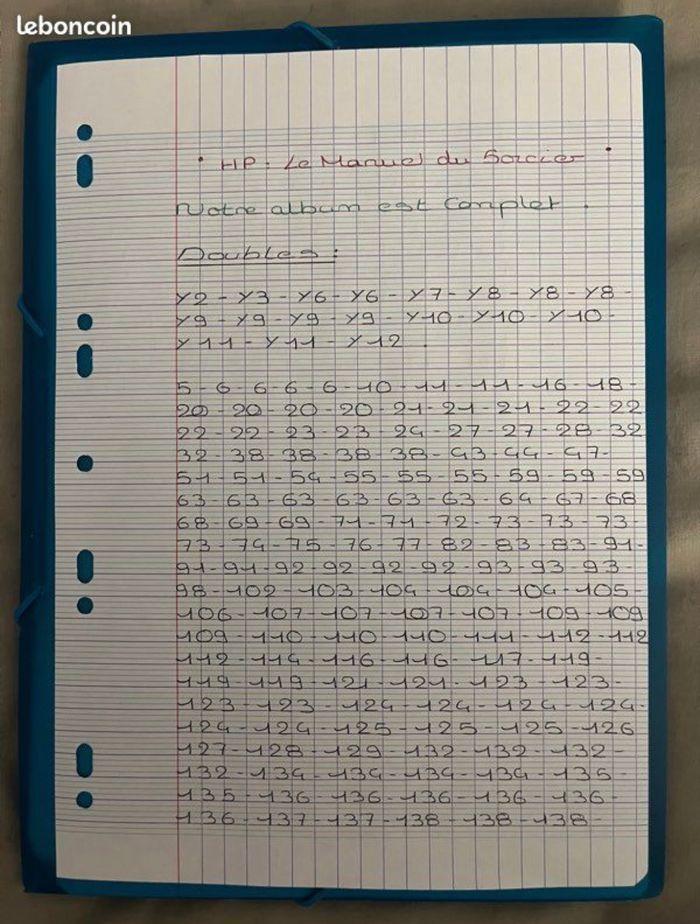 leboncoin
• HP: Le Manuel du Sorcier •
Notre album est Complet.
Doubles:
Y2 - Y3 - Y6 - Y6 - Y7 - Y8 - Y8 - Y8 -
Y9 - Y9 - Y9 - Y9 - Y10 - Y10 - Y10 -
Y11 - Y11 - Y12.
5 - 6 - 6 - 6 - 6 - 10 - 11 - 11 - 16 - 18 -
20 - 20 - 20 - 20 - 21 - 21 - 21 - 22 - 22
22 - 22 - 23 - 23 - 24 - 27 - 27 - 28 - 32
32 - 38 - 38 - 38 - 38 - 43 - 44 - 47 -
51 - 51 - 54 - 55 - 55 - 55 - 59 - 59 - 59
63 - 63 - 63 - 63 - 63 - 63 - 64 - 67 - 68
68 - 69 - 69 - 71 - 71 - 72 - 73 - 73 - 73 -
73 - 74 - 75 - 76 - 77 - 82 - 83 - 83 - 91 -
91 - 91 - 92 - 92 - 92 - 92 - 93 - 93 - 93 -
98 - 102 - 103 - 104 - 104 - 104 - 105 -
106 - 107 - 107 - 107 - 107 - 109 - 109
109 - 110 - 110 - 110 - 111 - 112 - 112
112 - 114 - 116 - 116 - 117 - 119 -
119 - 119 - 121 - 121 - 123 - 123 -
123 - 123 - 124 - 124 - 124 - 124 -
124 - 124 - 125 - 125 - 125 - 126
127 - 128 - 129 - 132 - 132 - 132 -
132 - 134 - 134 - 134 - 134 - 135 -
135 - 136 - 136 - 136 - 136 - 136 -
136 - 137 - 137 - 138 - 138 - 138 -